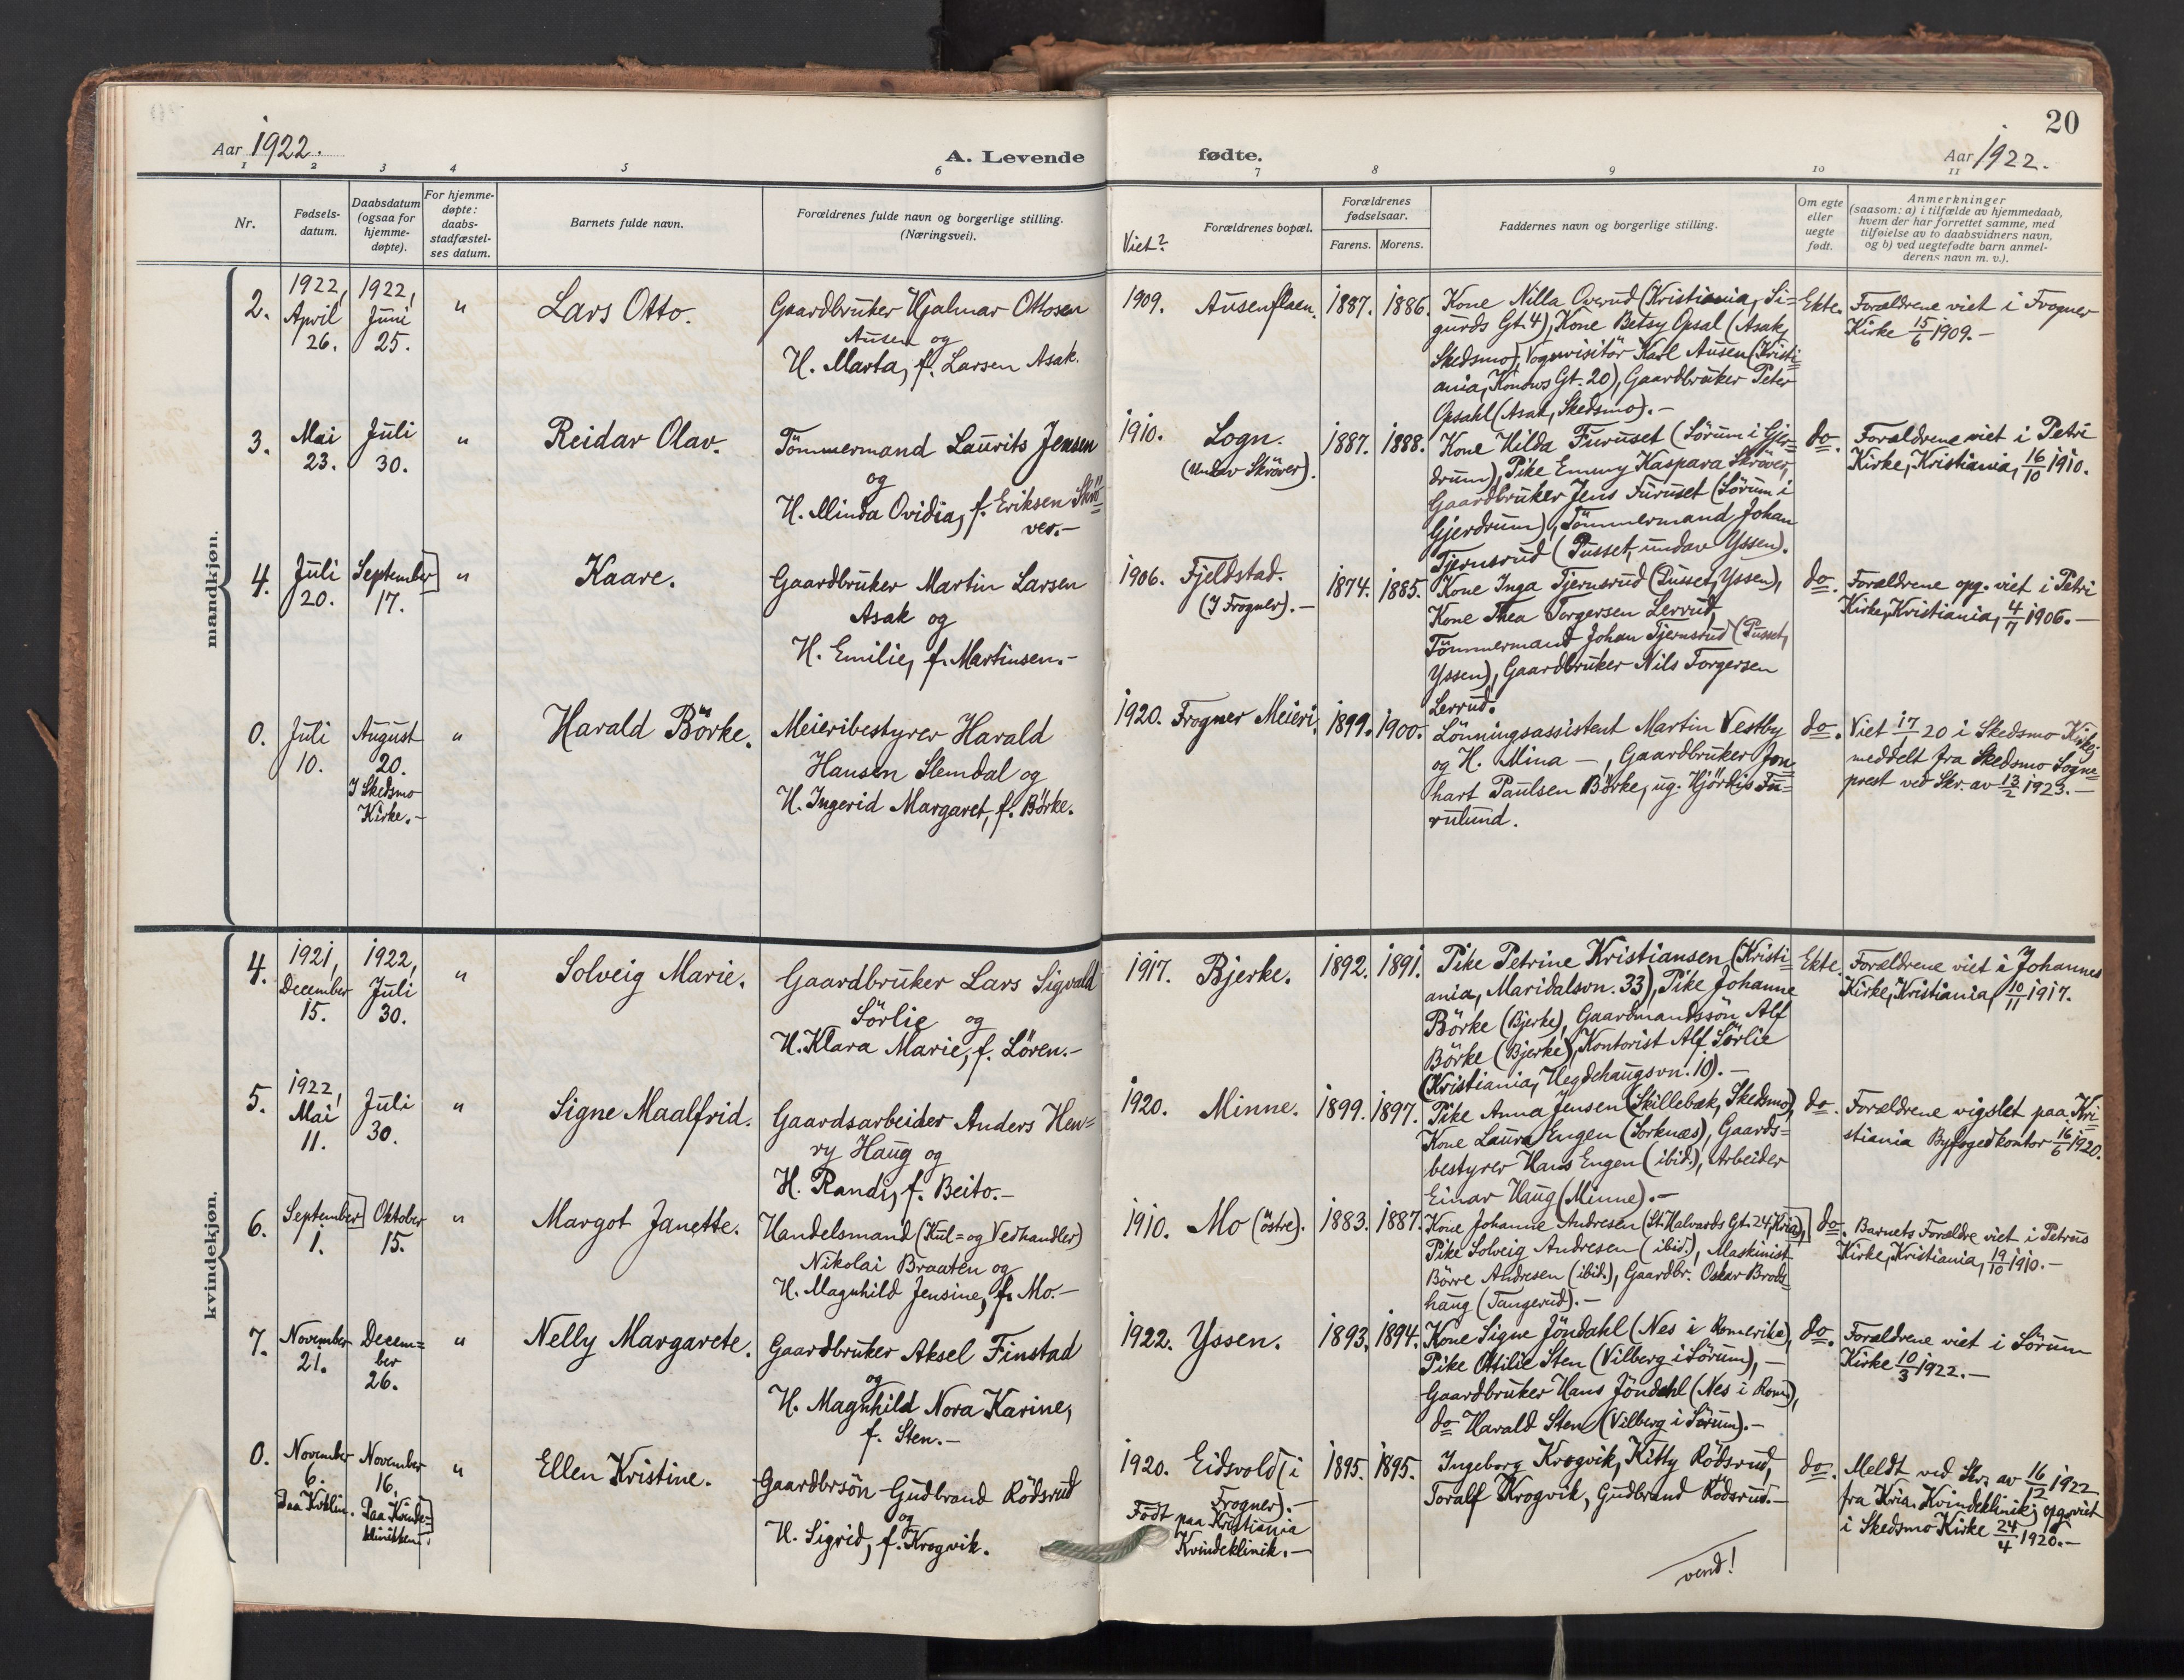 20
Aar 1922.
A. Levende fødte.
Aar 1922.
1 2 3 4 5 6 7 8 9 10 11
Nr.
Fødsels-
datum.
Daabsdatum
(ogsaa for
hjemme-
døpte).
For hjemme-
døpte:
daabs-
stadfæstel-
ses datum.
Barnets fulde navn.
Forældrenes fulde navn og borgerlige stilling.
(Næringsvei).
Viet?
Forældrenes bopæl.
Forældrenes
fødselsaar.
Farens. Morens.
Faddernes navn og borgerlige stilling.
Om egte
eller
uegte
født.
Anmerkninger
(saasom: a) i tilfælde av hjemmedaab,
hvem der har forrettet samme, med
tilføielse av to daabsvidners navn,
og b) ved uegtefødte barn anmel-
derens navn m. v.).
mandkjøn.
2.
1922,
April
26.
1922,
Juni
25.
"
Lars Otto.
Gaardbruker Hjalmar Ottosen
Ausen og
H. Marta, f. Larsen Asak.
1909.
Ausenflaen.
1887.
1886.
Kone Nilla Overud (Kristiania, Si-
gurds Gt. 4), Kone Betsy Opsal (Asak,
Skedsmo), Vognvisitör Karl Ausen (Kristi=
ania, Konows Gt. 20), Gaardbruker Peter
Opsahl (Asak, Skedsmo). -
Ekte.
Forældrene viet i Frogner
Kirke 15/6 1909. -
3.
Mai
23.
Juli
30.
"
Reidar Olav.
Tömmermand Laurits Jensen
og
H. Minda Ovidia, f. Eriksen Skrö=
ver. -
1910.
Logn.
(undav Skröver).
1887.
1888.
Kone Hilda Furuset (Sörum i Gjer=
drum), Pike Emmy Kaspara Skröver,
Gaardbruker Jens Furuset (Sörum i
Gjerdrum), Tömmermand Johan
Tjernsrud (Pusset, undav Yssen).
do.
Forældrene viet i Petri
Kirke, Kristiania, 16/10 1910.
4.
Juli
20.
September
17.
"
Kaare.
Gaardbruker Martin Larsen
Asak og
H. Emilie, f. Martinsen. -
1906.
Fjeldstad.
(I Frogner). -
1874.
1885.
Kone Inga Tjernsrud (Pusset, Yssen),
Kone Thea Torgersen Lerrud,
Tömmermand Johan Tjernsrud (Pusset,
Yssen), Gaardbruker Nils Torgersen
Lerrud.
do.
Forældrene opg. viet i Petri
Kirke, Kristiania, 4/7 1906. -
0.
Juli
10.
August
20.
I Skedsmo
Kirke. -
"
Harald Börke.
Meieribestyrer Harald
Hansen Slemdal og
H. Ingerid Margaret, f. Börke.
1920.
Frogner Meieri.
1899.
1900.
Lönningsassistent Martin Vestby
og H. Mina -, Gaardbruker Jon=
hart Paulsen Börke, ug. Hjördis Fu=
rulund.
do.
Viet 17/1 20 i Skedsmo Kirke;
meddelt fra Skedsmo Sogne=
prest ved Skr. av 13/2 1923. -
kvindekjøn.
4.
1921,
December
15.
1922,
Juli
30.
"
Solveig Marie.
Gaardbruker Lars Sigvald
Sörlie og
H. Klara Marie, f. Lören. -
1917.
Bjerke.
1892.
1891.
Pike Petrine Kristiansen (Kristi=
ania, Maridalsvn. 33), Pike Johanne
Börke (Bjerke), Gaardmandssön Alf
Börke (Bjerke), Kontorist Alf Sörlie
(Kristiania, Hegdehaugsvn. 10). -
Ekte.
Forældrene viet i Johannes
Kirke, Kristiania, 10/11 1917.
5.
1922,
Mai
11.
Juli
30.
"
Signe Maalfrid.
Gaardsarbeider Anders Hen=
ry Haug og
H. Randi, f. Beito. -
1920.
Minne.
1899.
1897.
Pike Anna Jensen (Skillebæk, Skedsmo),
Kone Laura Engen (Sorknæs), Gaards=
bestyrer Hans Engen (ibid.), Arbeider
Einar Haug (Minne). -
do.
Forældrene vigslet paa Kri=
stiania Byfogedkontor 16/6 1920.
6.
September
1.
Oktober
15.
"
Margot Janette.
Handelsmand (Kul= og Vedhandler)
Nikolai Braaten og
H. Magnhild Jensine, f. Mo. -
1910.
Mo (östre).
1883.
1887.
Kone Johanne Andresen (St. Halvards Gt. 24, Kria),
Pike Solveig Andresen (ibid.), Maskinist
Börre Andresen (ibid.), Gaardbr. Oskar Brods=
haug (Tangerud). -
do.
Barnets Forældre viet i Petrus
Kirke, Kristiania, 19/10 1910. -
7.
November
21.
Decem=
ber
26.
"
Nelly Margarete.
Gaardbruker Aksel Finstad
og
H. Magnhild Nora Karine,
f. Sten. -
1922.
Yssen.
1893.
1894.
Kone Signe Jöndahl (Nes i Romerike),
Pike Ottilie Sten (Vilberg i Sörum), -
Gaardbruker Hans Jöndahl (Nes i Rom.),
do Harald Sten (Vilberg i Sörum). -
do.
Forældrene viet i Sörum
Kirke 10/3 1922. -
0.
November
6.
Paa Kvklin.
November
16.
Paa Kvinde=
klinikken.
"
Ellen Kristine.
Gaardbrsön Gudbrand Rödsrud
og
H. Sigrid, f. Krogvik.
1920.
Eidsvold (i
Frogner). -
Född paa Kristiania
Kvindeklinik. -
1895.
1895.
Ingeborg Krogvik, Kitty Rödsrud,
Toralf Krogvik, Gudbrand Rödsrud. -
do.
Meldt ved Skr. av 16/12 1922
fra Kria. Kvindeklinik; opg. viet
i Skedsmo Kirke 24/4 1920. -
vend!